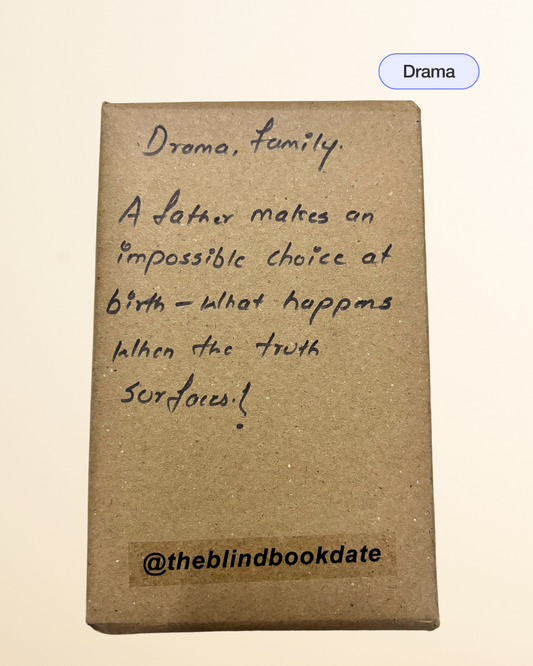 Drama
Drama, family.
A father makes an
impossible choice at
birth – What happens
When the truth
surfaces?
@theblindbookdate